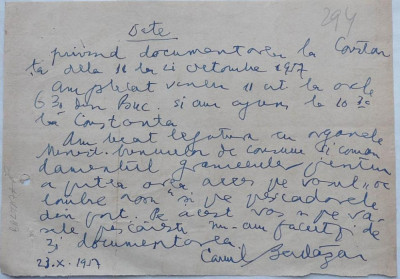 294
Date
privind documentarea la Constan
ța dela 11 la octombrie 1957
Am plecat vineri 11 oct la orele
6 30 din Buc. si am ajuns la 10 30
la Constanta
Am luat legatura cu organele
Minist. bunurilor de consum si coman
damentul graniceresc pentru
a putea avea acces pe vasul
si pe pescadorele
din port. Pe acest vas si pe va
sele pescaresti mi-am facut
documentarea
Camil Baltazar
23.X.1957